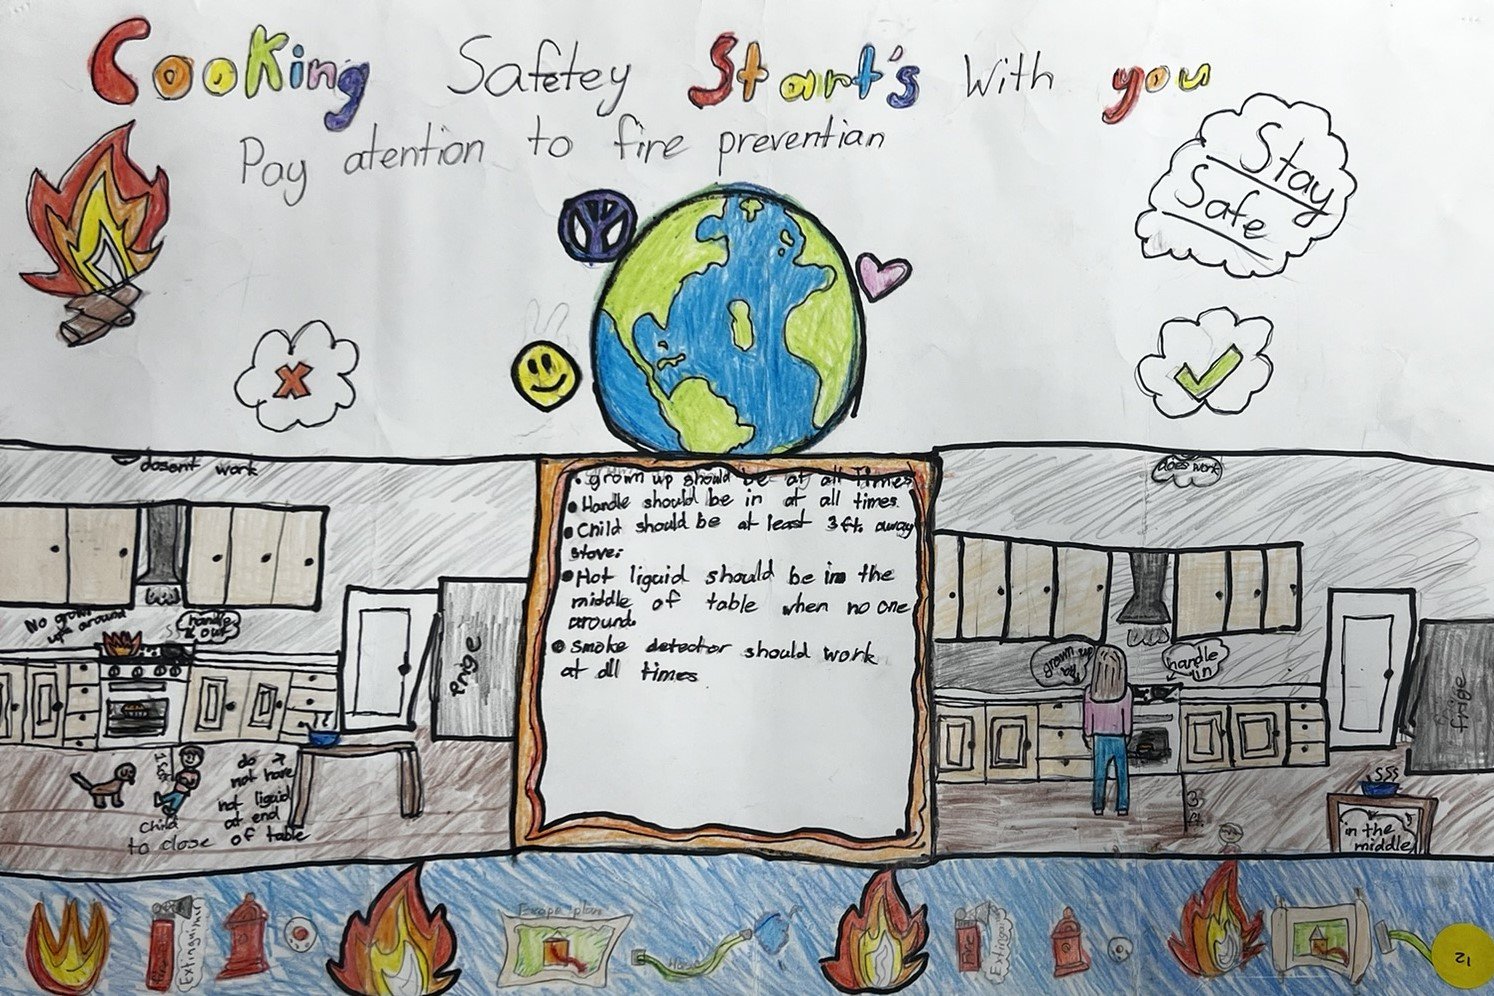 Cooking Safetey Start's with you
Pay atention to fire preventian
Stay
Safe
dosent work
No grown
ups around
handle
out
frige
1 ft
child
to close
do
not have
hot liquid
at end
of table
• grown up should be at all times
• Handle should be in at all times.
• Child should be at least 3 ft. away
stove.
• Hot liquid should be in the
middle of table when no one
around.
• smoke detector should work
at all times
does work
grown up
handle
in
frige
3
ft.
in the
middle
Fire
Extinguisher
Escape plan
Hose
Fire
12